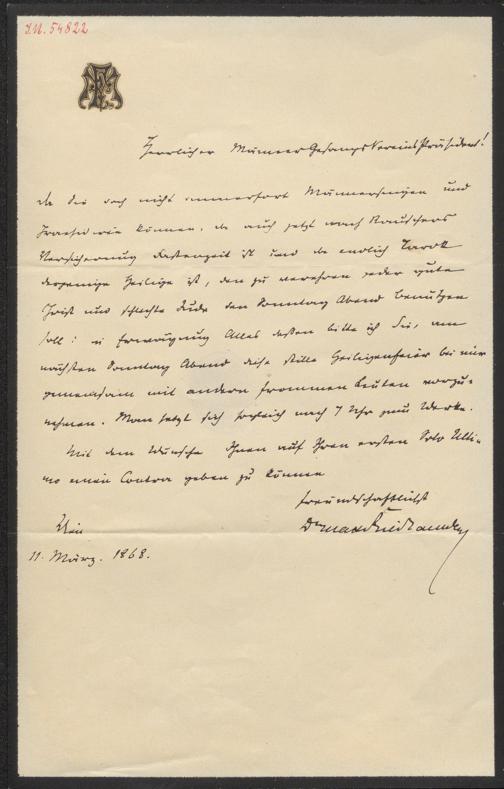 I.N. 54822
Herrlicher Männer Gesangs Vereins Präsident!
Da Sie doch nicht immerfort Männersingen und
können, da auch jetzt nach Rauschers
Versicherung Fastenzeit ist und da endlich Tarok
derjenige Heilige ist, den zu verehren jeder gute
Christ und schlechte Jude den Sonntag Abend benutzen
soll: in Erwägung Alles dessen bitte ich Sie, am
nächsten Sonntag Abend diese stille Heiligenfeier bei mir
gemeinsam mit andern frommen Leuten vorzu-
nehmen. Man setzt sich sogleich nach 7 Uhr zum Werke.
Mit dem Wunsche Ihnen auf Ihren ersten Solo Ulti-
mo einen Contra geben zu können
freundschaftlichst
Dr Max Friedlaender
Wien
11. März. 1868.